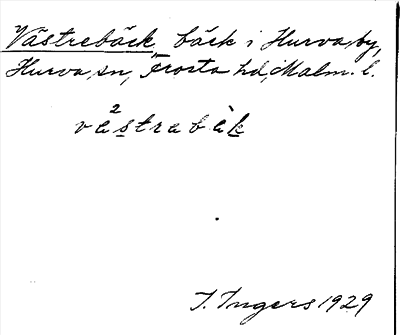 Västrebäck, bäck i Hurva by,
Hurva sn, Frosta hd, Malm. l.
vä²strabàk
I. Ingers 1929